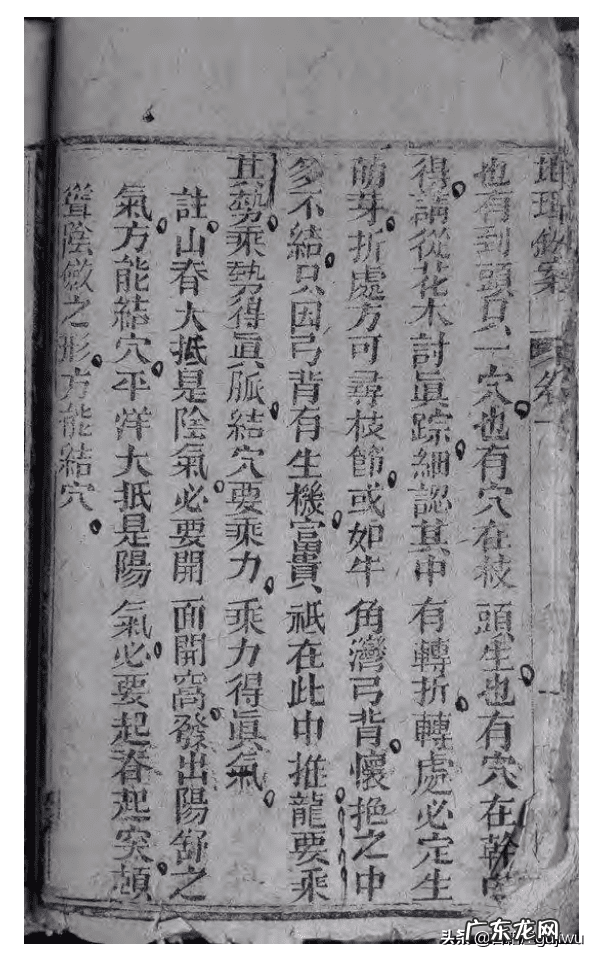 地理 案 卷一
也有到頭只一穴。也有穴在枝頭生。也有穴在幹中
得。請從花木討眞踪。細認其中有轉折。轉處必定生
萌芽。折處方可尋枝節。或如牛角灣弓背。懷抱之中
多不結。只因弓背有生機。富貴祗在此中推。龍要乘
其勢。乘勢得眞脈。結穴要乘力。乘力得眞氣。
註。山脊大抵是陰氣。必要開面開窩。發出陽舒之
氣。方能結穴。平洋大抵是陽氣。必要起脊起突。頓
聳陰斂之形。方能結穴。
头条
广东龙网